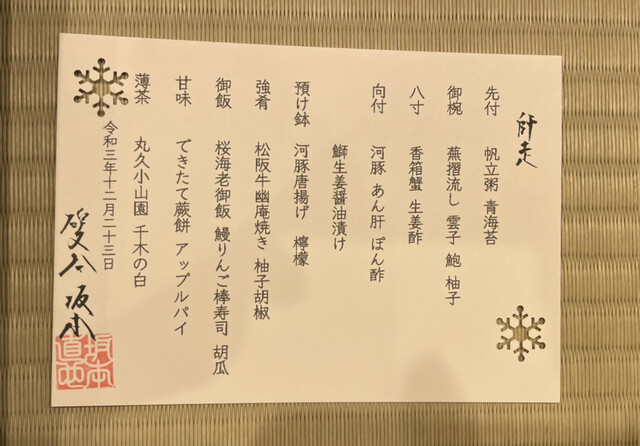 師走
先付 帆立粥 青海苔
御椀 蕪摺流し 雲子 鮑 柚子
八寸 香箱蟹 生姜酢
向付 河豚 あん肝 ぽん酢
鰤生姜醤油漬け
預け鉢 河豚唐揚げ 檸檬
強肴 松阪牛幽庵焼き 柚子胡椒
御飯 桜海老御飯 鰻りんご棒寿司 胡瓜
甘味 できたて蕨餅 アップルパイ
薄茶 丸久小山園 千木の白
令和三年十二月二十三日
坂本